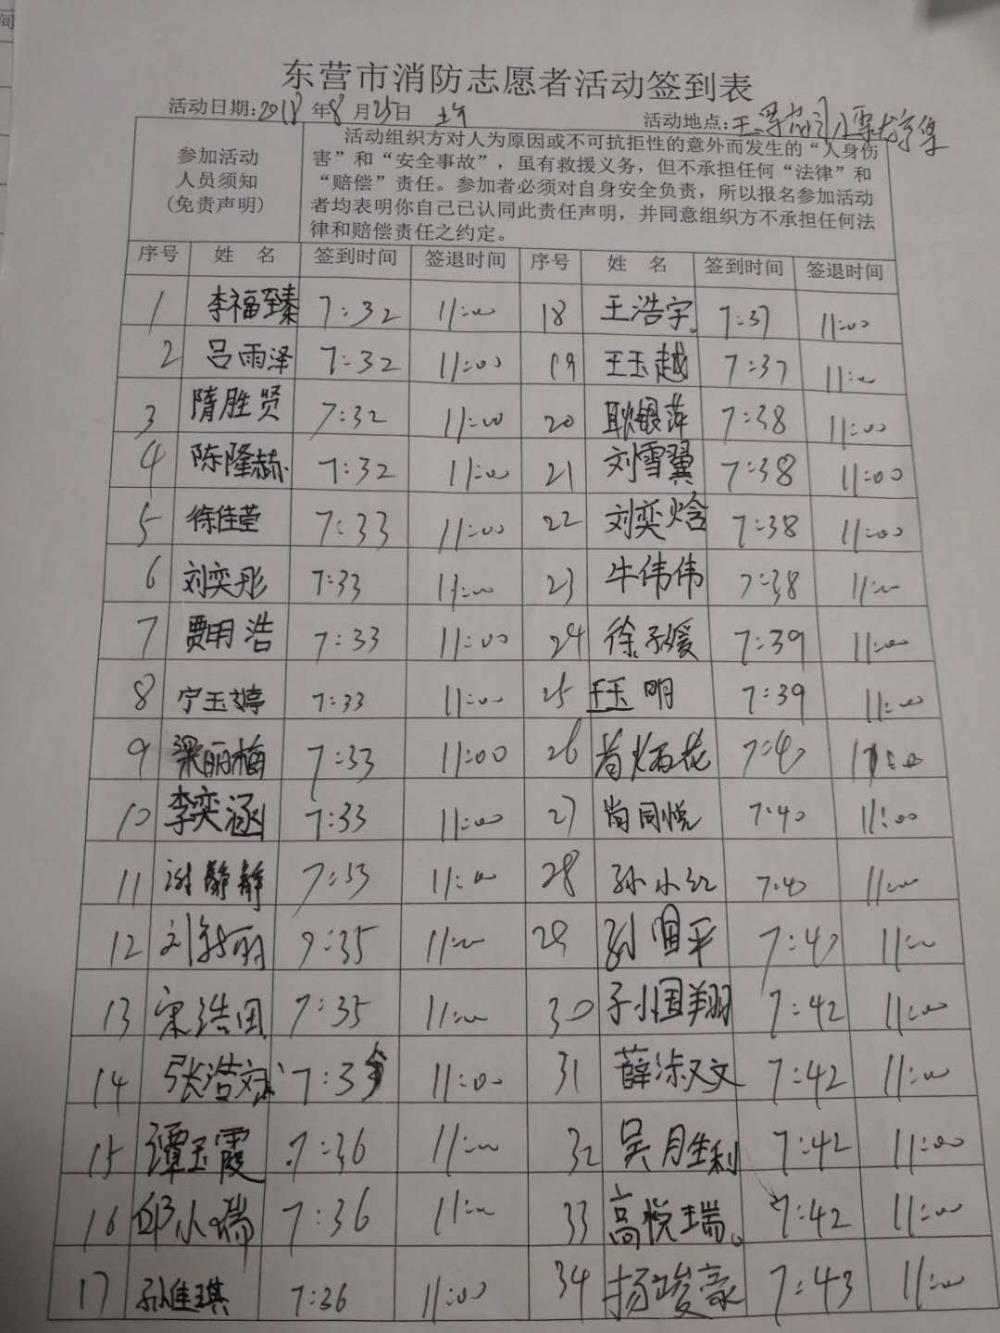 东营市消防志愿者活动签到表
活动日期:2018年8月25日 上午 活动地点:
参加活动
人员须知
(免责声明)
活动组织方对人为原因或不可抗拒性的意外而发生的“人身伤
害”和“安全事故”,虽有救援义务,但不承担任何“法律”和
“赔偿”责任。参加者必须对自身安全负责,所以报名参加活动
者均表明你自己已认同此责任声明,并同意组织方不承担任何法
律和赔偿责任之约定。
序号 姓 名 签到时间 签退时间 序号 姓 名 签到时间 签退时间
1 李福臻 7:32 11:00 18 王浩宇。 7:37 11:00
2 吕雨泽 7:32 11:00 19 王玉越 7:37 11:00
3 隋胜贤 7:32 11:00 20 耿银萍 7:38 11:00
4 陈隆赫 7:32 11:00 21 刘雪翼 7:38 11:00
5 徐佳莹 7:33 11:00 22 刘奕焓 7:38 11:00
6 刘奕彤 7:33 11:00 23 牛伟伟 7:38 11:00
7 贾明浩 7:33 11:00 24 徐子媛 7:39 11:00
8 宁玉婷 7:33 11:00 25 王玉明 7:39 11:00
9 梁丽梅 7:33 11:00 26 7:40 11:00
10 李奕涵 7:33 11:00 27 尚同悦 7:40 11:00
11 谢静静 7:33 11:00 28 孙小红 7:40 11:00
12 7:35 11:00 29 7:40 11:00
13 宋浩田 7:35 11:00 30 7:42 11:00
14 张浩 11:00 31 薛淑文 7:42 11:00
15 谭玉霞 7:36 11:00 32 吴胜利 7:42 11:00
16 邱小瑞 7:36 11:00 33 高悦瑞。 7:42 11:00
17 孙佳琪 7:36 11:00 34 杨峻豪 7:43 11:00